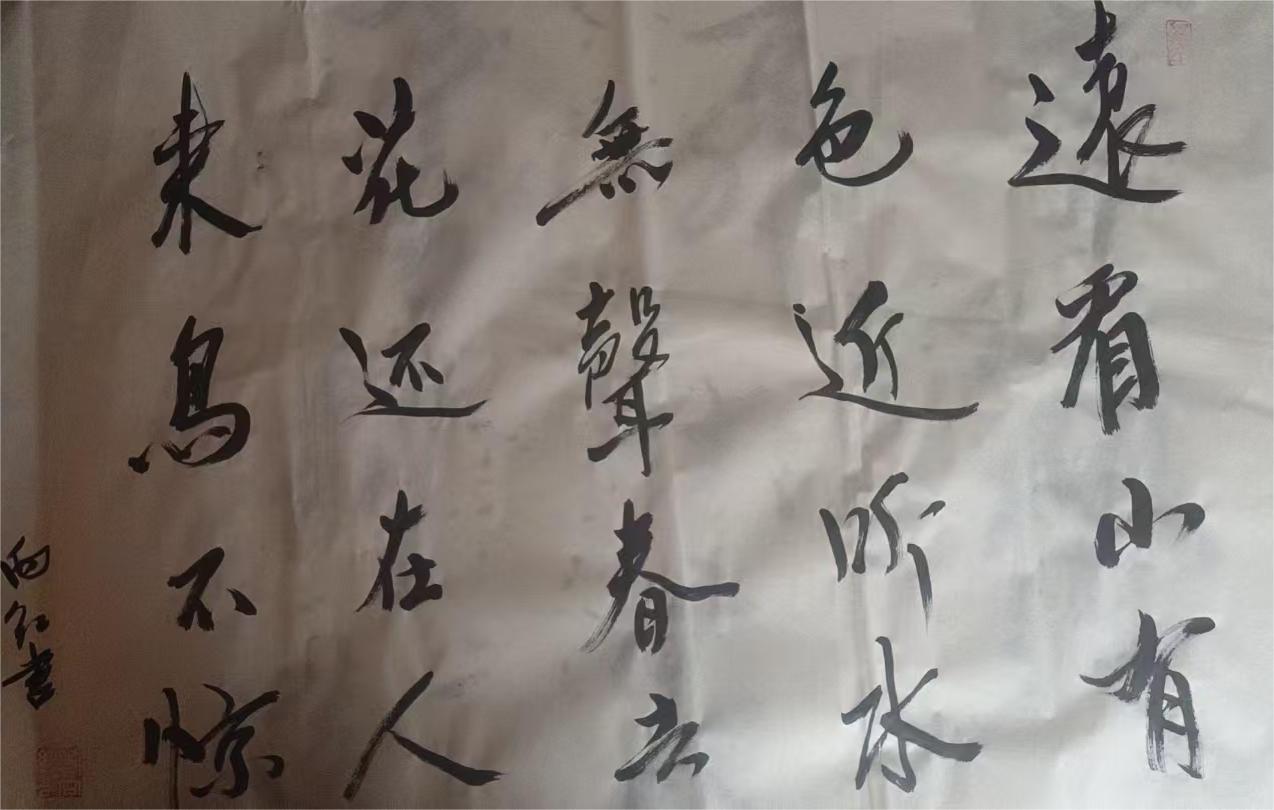 遠看山有
色近听水
無聲春去
花还在人
来鳥不惊
向红書